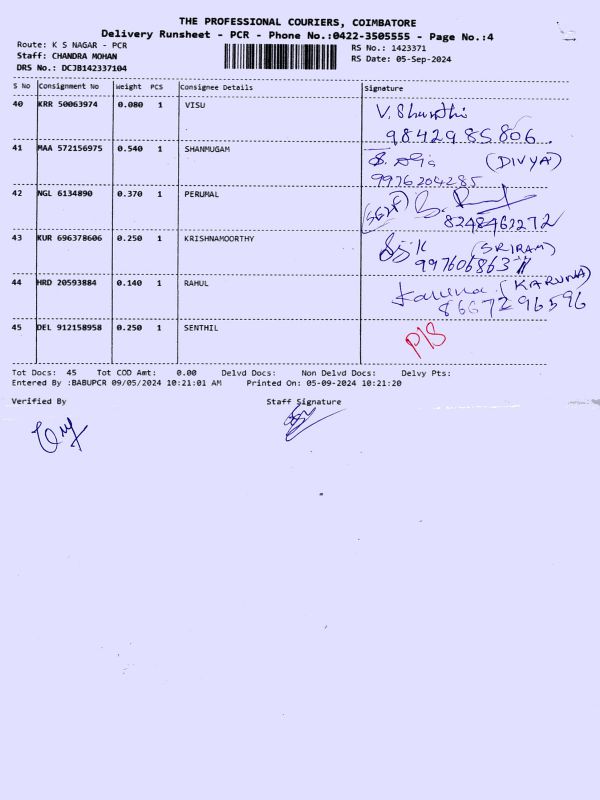 THE PROFESSIONAL COURIERS, COIMBATORE
Delivery Runsheet - PCR - Phone No.:0422-3505555 - Page No.:4
Route: K S NAGAR - PCR
RS No.: 1423371
Staff: CHANDRA MOHAN
RS Date: 05-Sep-2024
DRS No.: DCJB142337104
S No Consignment No Weight PCS Consignee Details Signature
40 KRR 50063974 0.080 1 VISU
9842985806
41 MAA 572156975 0.540 1 SHANMUGAM (DIVYA)
9976204285
42 NGL 6134890 0.370 1 PERUMAL
8248462272
43 KUR 696378606 0.250 1 KRISHNAMOORTHY (SRIRAM)
44 HRD 20593884 0.140 1 RAHUL Karuna (KARUNA)
8667296596
45 DEL 912158958 0.250 1 SENTHIL P/S
Tot Docs: 45 Tot COD Amt: 0.00 Delvd Docs: Non Delvd Docs: Delvy Pts:
Entered By :BABUPCR 09/05/2024 10:21:01 AM Printed On: 05-09-2024 10:21:20
Verified By Staff Signature